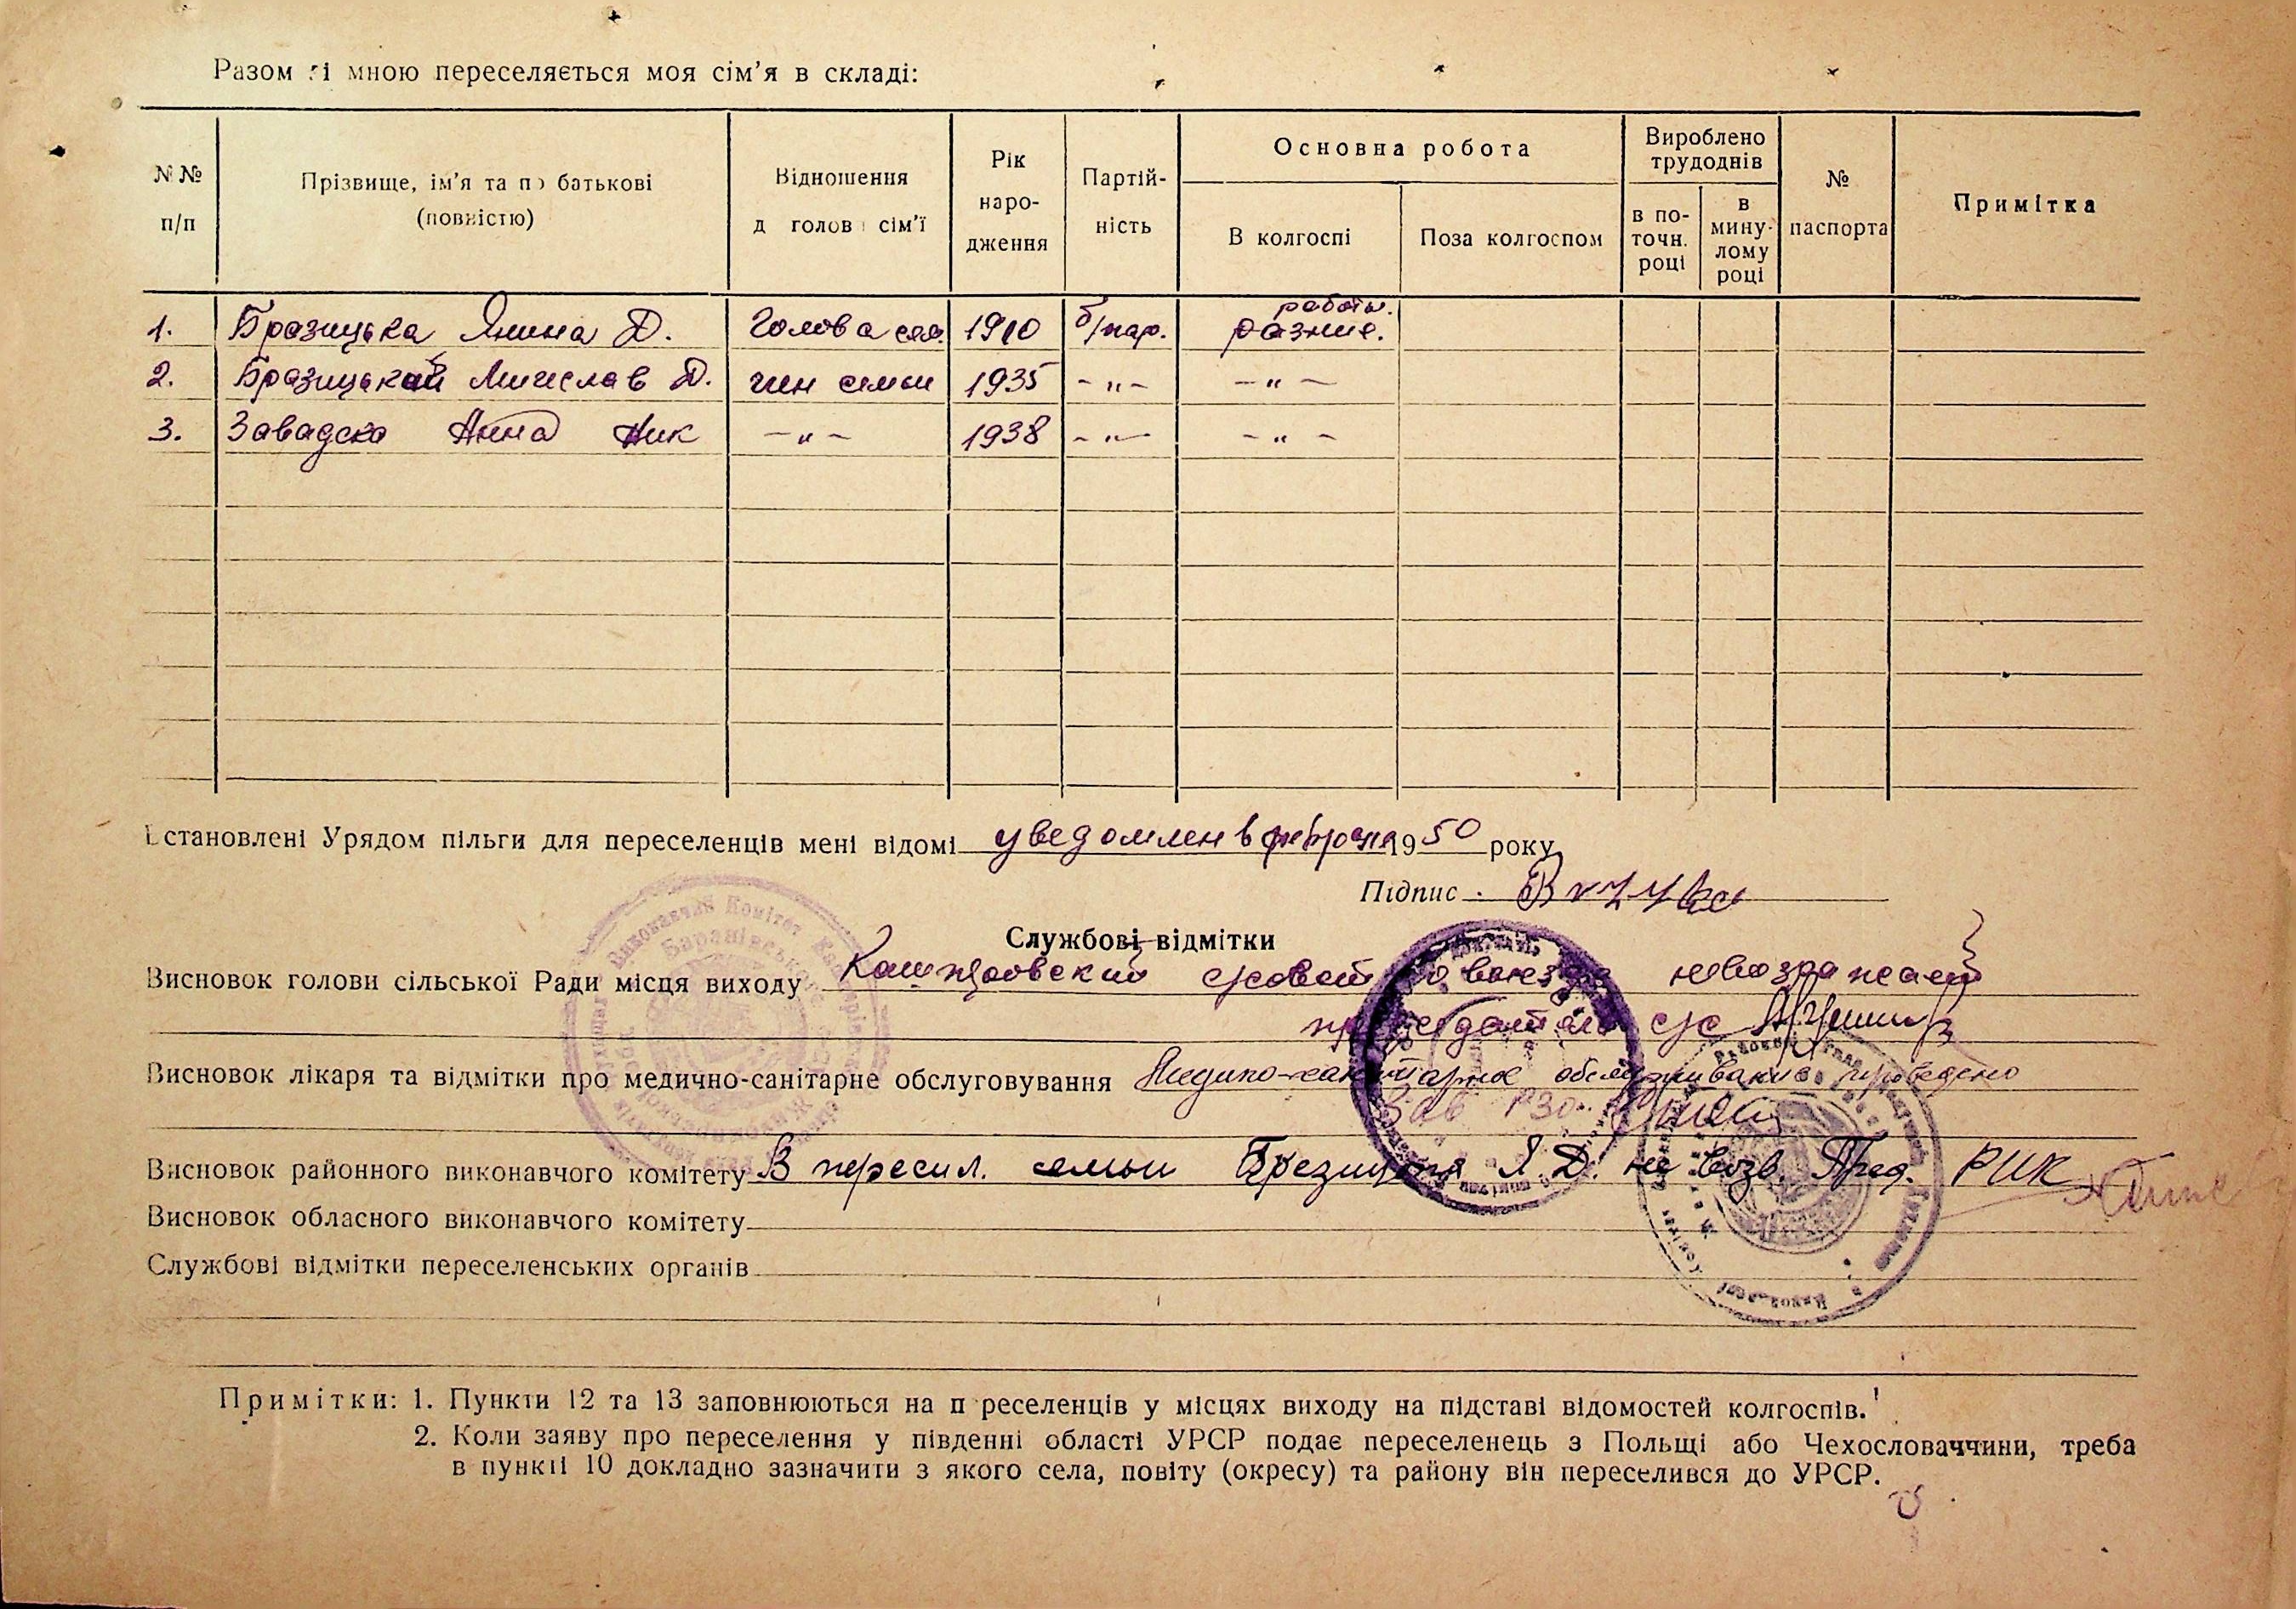 Разом зі мною переселяється моя сім'я в складі:
№№ п/п
Прізвище, ім'я та по батькові (повністю)
Відношення д голов сім'ї
Рік народження
Партійність
Основна робота
В колгоспі
Поза колгоспом
Вироблено трудоднів
в поточн. році
в минулому році
№ паспорта
Примітка
1. Бразицька Янина Д. Голова сем. 1910 б/пар. работы разние.
2. Бразицький Мичеслав Д. член семьи 1935 -"- -"-
3. Завадска Анна Ник -"- 1938 -"- -"-
Встановлені Урядом пільги для переселенців мені відомі уведомлен в феврале 1950 року
Підпис
Службові відмітки
Висновок голови сільської Ради місця виходу с/совет о выезде невозражает
председатель с/с
Висновок лікаря та відмітки про медично-санітарне обслуговування Медико-санитарное обслуживание проведено
Зав РЗо
Висновок районного виконавчого комітету В пересил. семьи Брезицкая Я. Д. не возв. Пред. РИК
Висновок обласного виконавчого комітету
Службові відмітки переселенських органів
Примітки: 1. Пункти 12 та 13 заповнюються на п реселенців у місцях виходу на підставі відомостей колгоспів.
2. Коли заяву про переселення у південні області УРСР подає переселенець з Польщі або Чехословаччини, треба
в пункті 10 докладно зазначити з якого села, повіту (окресу) та району він переселився до УРСР.